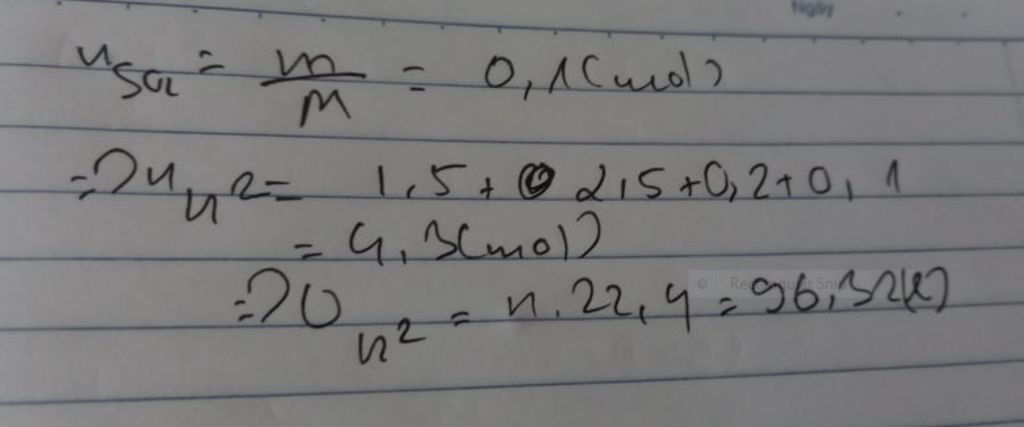 Ngày
n_SO2 = m/M = 0,1(mol)
=> n_hh = 1,5 + 2,5 + 0,2 + 0,1
= 4,3(mol)
=> V_hh = n.22,4 = 96,32(l)